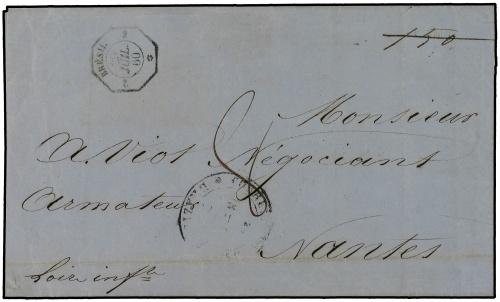 BRÉSIL 2 JUIL. 60 2
150
8
Monsieur
A. Viot Négociant
Armateur
Nantes
Loire infre